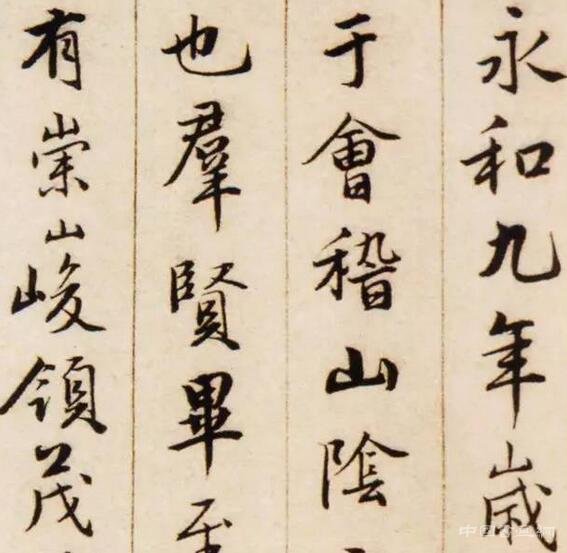 永和九年歲
于會稽山陰
也羣賢畢至
有崇山峻領茂
中国书画網